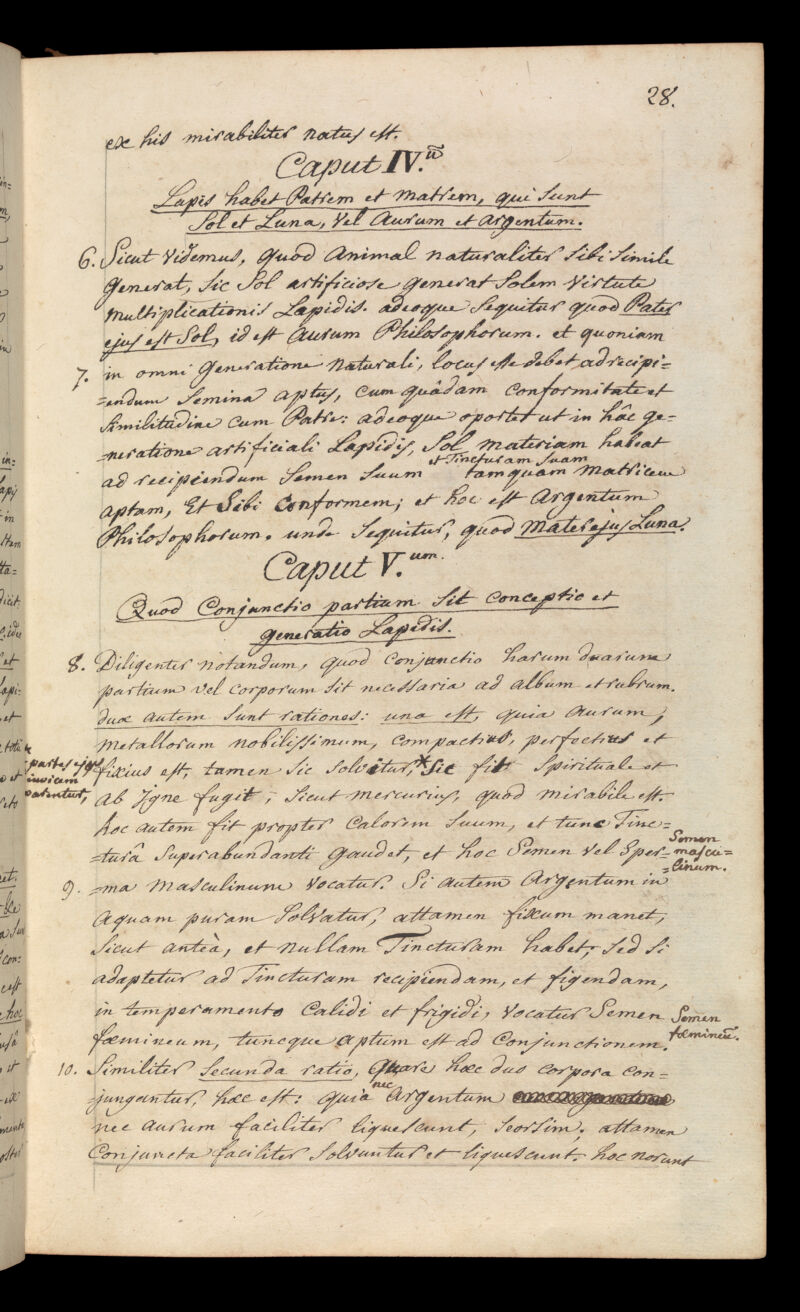 28.
ex his mirabiliter natus est.
Caput IV.ū
Lapis habet Patrem et matrem, qui Sunt
Sol et Luna, vel Aurum et Argentum.
6. Sicut videmus, quod Animal naturaliter sibi simile
generat, sic Sol artificiose generat Solem virtute
multiplicationis Lapidis. adeoque sequitur quod Pater
ejus est Sol, id est Aurum Philosophorum. et quoniam
7. in omni generatione naturali, locus esse debet, ad recipi=
=endum Semina aptus, cum quâdam conformitate et
similitudine cum Patre: adeoque oportet ut in hâc ge=
=neratione artificiali Lapidis, Sol materiam habeat
et Tincturam suam
ad recipiendum Semen suum tamquam matricem
aptam, Et Sibi Conformem; et hoc est Argentum
Philosophorum. unde sequitur, quod mater ejus Luna.
Caput V.um.
Quod Conjunctio partium sit conceptio et
generatio Lapidis.
8. Diligenter notandum, quod conjunctio harum duarum
partium vel corporum sit necessaria ad album et rubrum.
duæ autem sunt rationes: una est, quia Aurum,
metallorum nobilissimum, compactius, perfectius et
partes ejus
invicem
fixius est, tamen sic solvitur,* sic fit Spirituale et
ab Igne fugit, sicut mercurius, quod mirabile est.
hoc autem fit propter Calorem suum, et tunc Tinc=
=turâ superabundanti gaudet, et hoc Semen vel Sper=
Semen
mascu=
=linum.
9. =ma masculinum vocatur. Si autem Argentum in
Aquam puram solvatur, attamen fixum manet,
sicut anteà, et nullam Tincturam habet, sed si
adaptetur ad Tincturam recipiendam, et figendam,
in temperamento Calidi et frigidi, vocatur Semen
Semen
fœmineū.
fœmineum, tuncque aptum est ad Conjunctionem.
10. Similiter secunda ratio, Quare hæc duo corpora con=
nec
jungantur, hæc est: quia Argentum
nec Aurum faciliter liquescunt, seorsim; attamen
Conjuncta faciliter solvuntur et liquescunt. hoc norunt